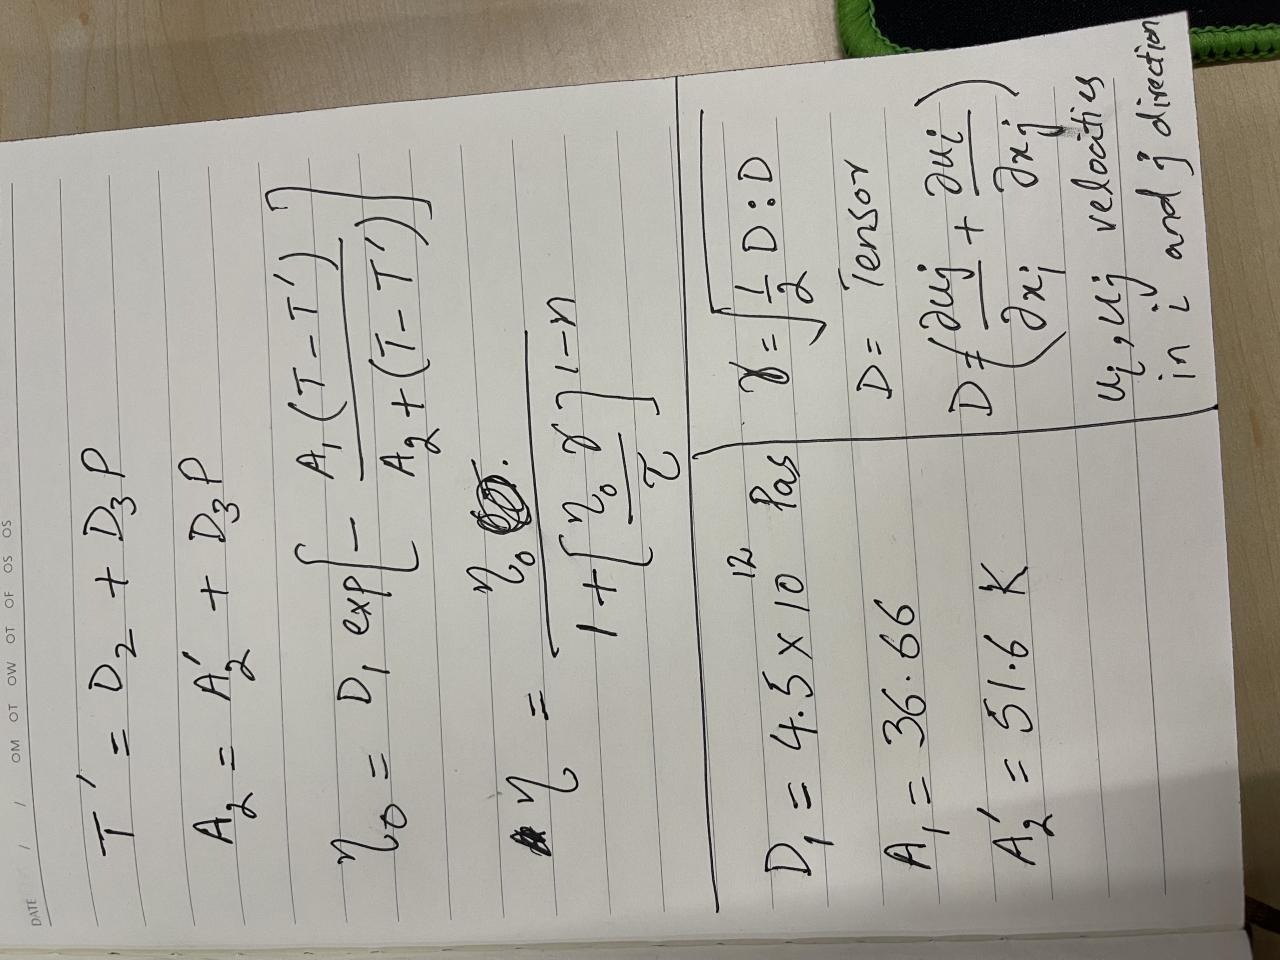 DATE / / OM OT OW OT OF OS OS
T' = D₂ + D₃P
A₂ = A₂' + D₃P
η₀ = D₁ exp[ - A₁(T - T') / A₂ + (T - T') ]
η = η₀ / 1 + [ η₀ γ / τ ]^1-n
D₁ = 4.5 × 10¹² Pas
A₁ = 36.66
A₂' = 51.6 K
γ = √ 1/2 D:D
D = Tensor
D = ( ∂uj/∂xi + ∂ui/∂xj )
ui, uj velocities
in i and j direction